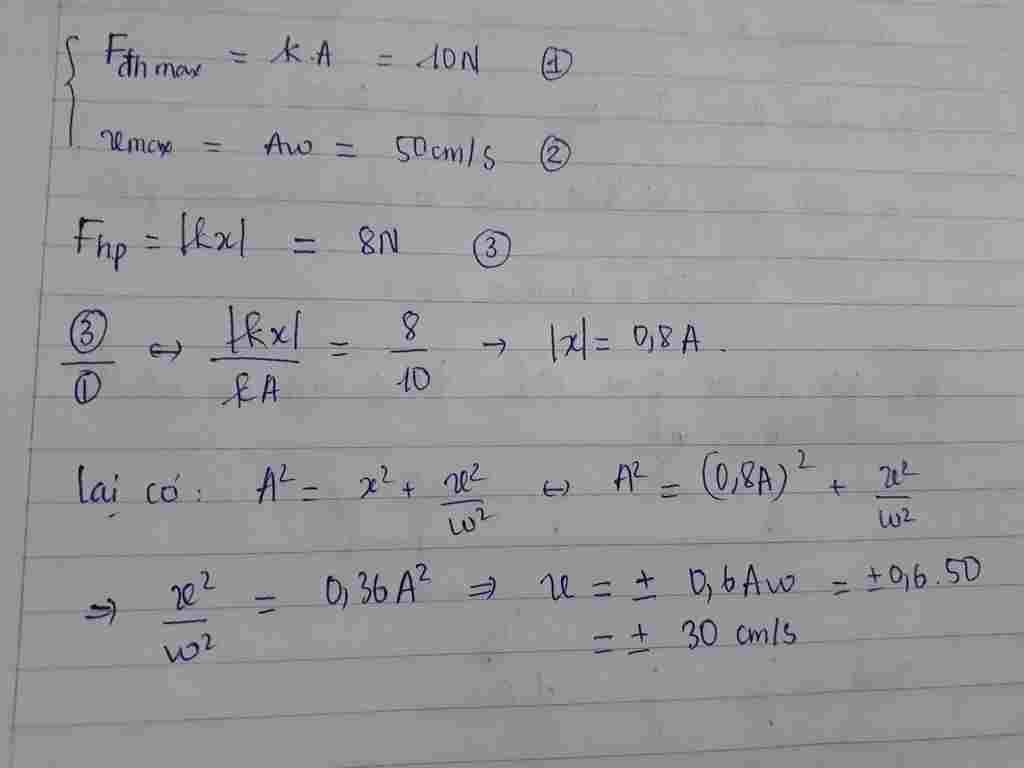 F_đh max = k.A = 10N ①
v_max = Aω = 50cm/s ②
F_hp = |kx| = 8N ③
③/① ⇔ |kx|/kA = 8/10 → |x| = 0,8A.
lại có: A² = x² + v²/ω² ⇔ A² = (0,8A)² + v²/ω²
⇒ v²/ω² = 0,36A² ⇒ v = ± 0,6Aω = ±0,6.50
= ± 30 cm/s